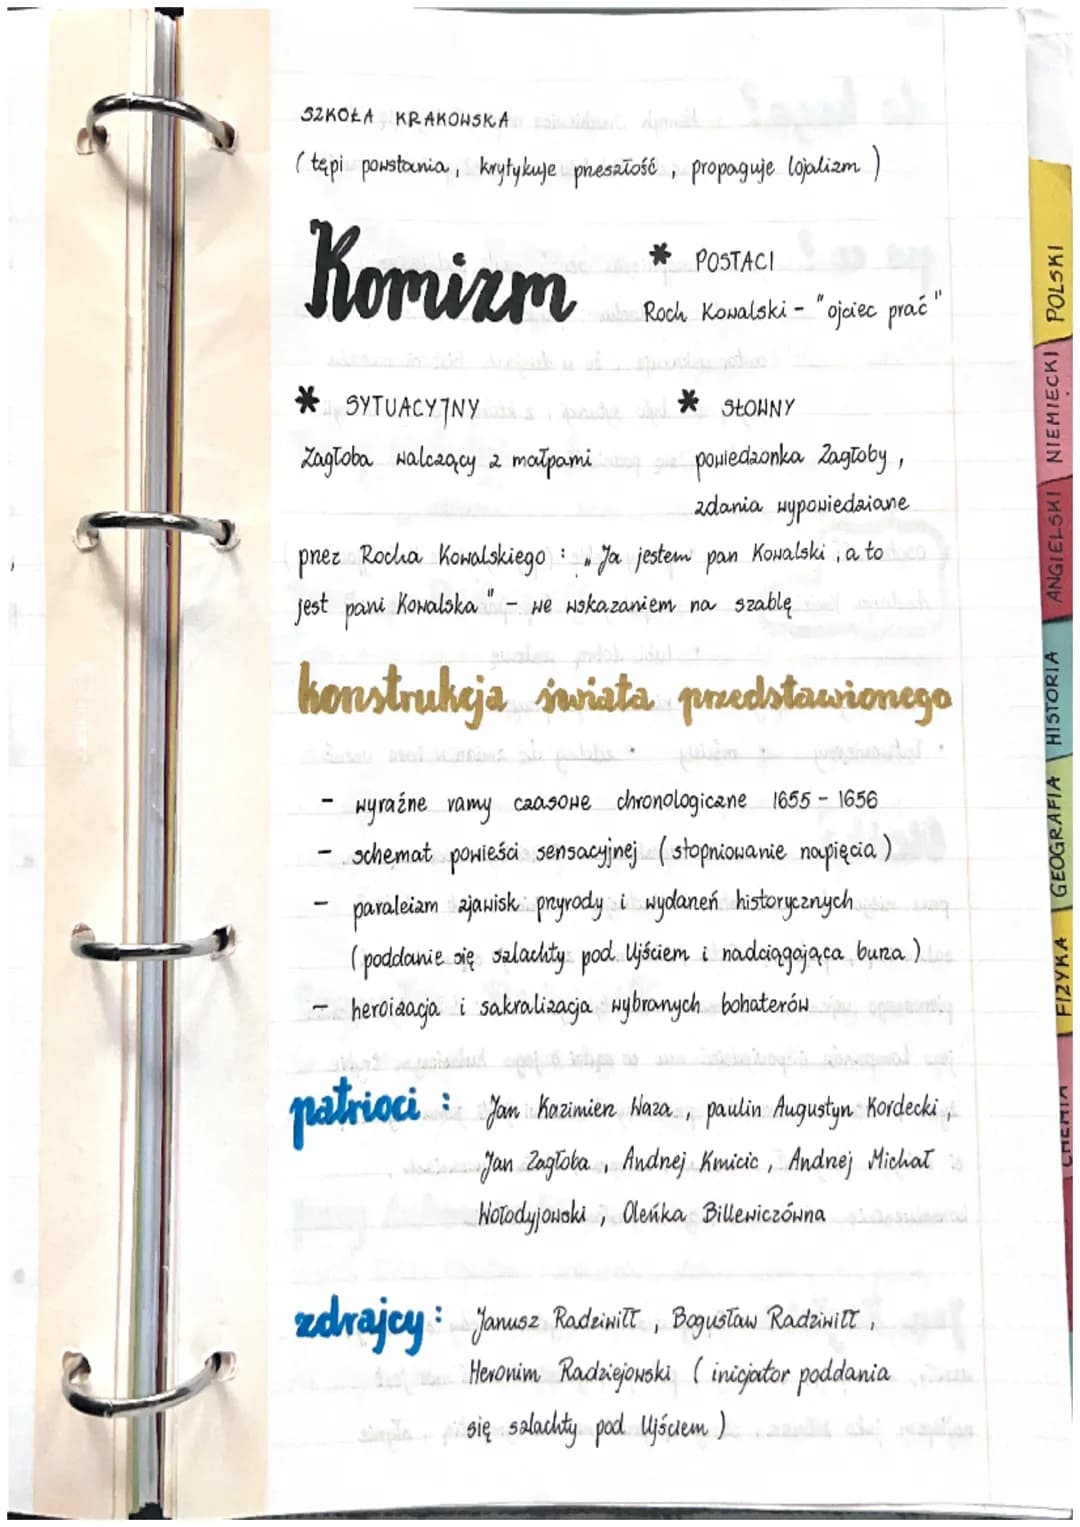 SZKOŁA KRAKOWSKA
( tępi powstania, krytykuje przeszłość, propaguje lojalizm )
Komizm
* POSTACI
Roch Kowalski - "ojciec prać"
* SYTUACYJNY
Zagłoba walczący z małpami
* SŁOWNY
powiedzonka Zagłoby,
zdania wypowiedziane
przez Rocha Kowalskiego : „Ja jestem pan Kowalski, a to
jest pani Kowalska" - we wskazaniem na szablę
konstrukcja świata przedstawionego
- wyraźne ramy czasowe chronologiczne 1655 - 1656
- schemat powieści sensacyjnej ( stopniowanie napięcia )
- paraleizm zjawisk przyrody i wydaneń historycznych
( poddanie się szlachty pod Ujściem i nadciągająca burza )
- heroizacja i sakralizacja wybranych bohaterów
patrioci : Jan Kazimierz Waza, paulin Augustyn Kordecki,
Jan Zagłoba, Andrzej Kmicic, Andrzej Michał
Wołodyjowski, Oleńka Billewiczówna
zdrajcy : Janusz Radziwiłł, Bogusław Radziwiłł,
Heronim Radziejowski ( inicjator poddania
się szlachty pod Ujściem )
POLSKI
NIEMIECKI
ANGIELSKI
HISTORIA
GEOGRAFIA
FIZYKA
CHEMIA